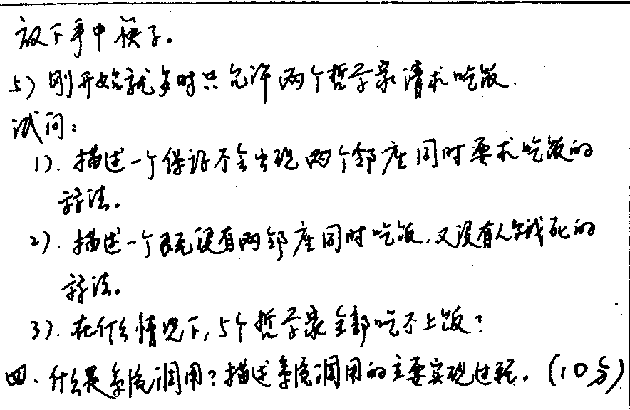 放下手中筷子。
5) 刚开始就多时只允许两个哲学家请求吃饭.
试问:
1). 描述一个保证不会出现两个邻座同时要求吃饭的
算法。
2). 描述一个既没有两邻座同时吃饭,又没有人饿死的
算法。
3). 在什么情况下,5个哲学家全部吃不上饭?
四. 什么是系统调用?描述系统调用的主要实现过程. (10分)